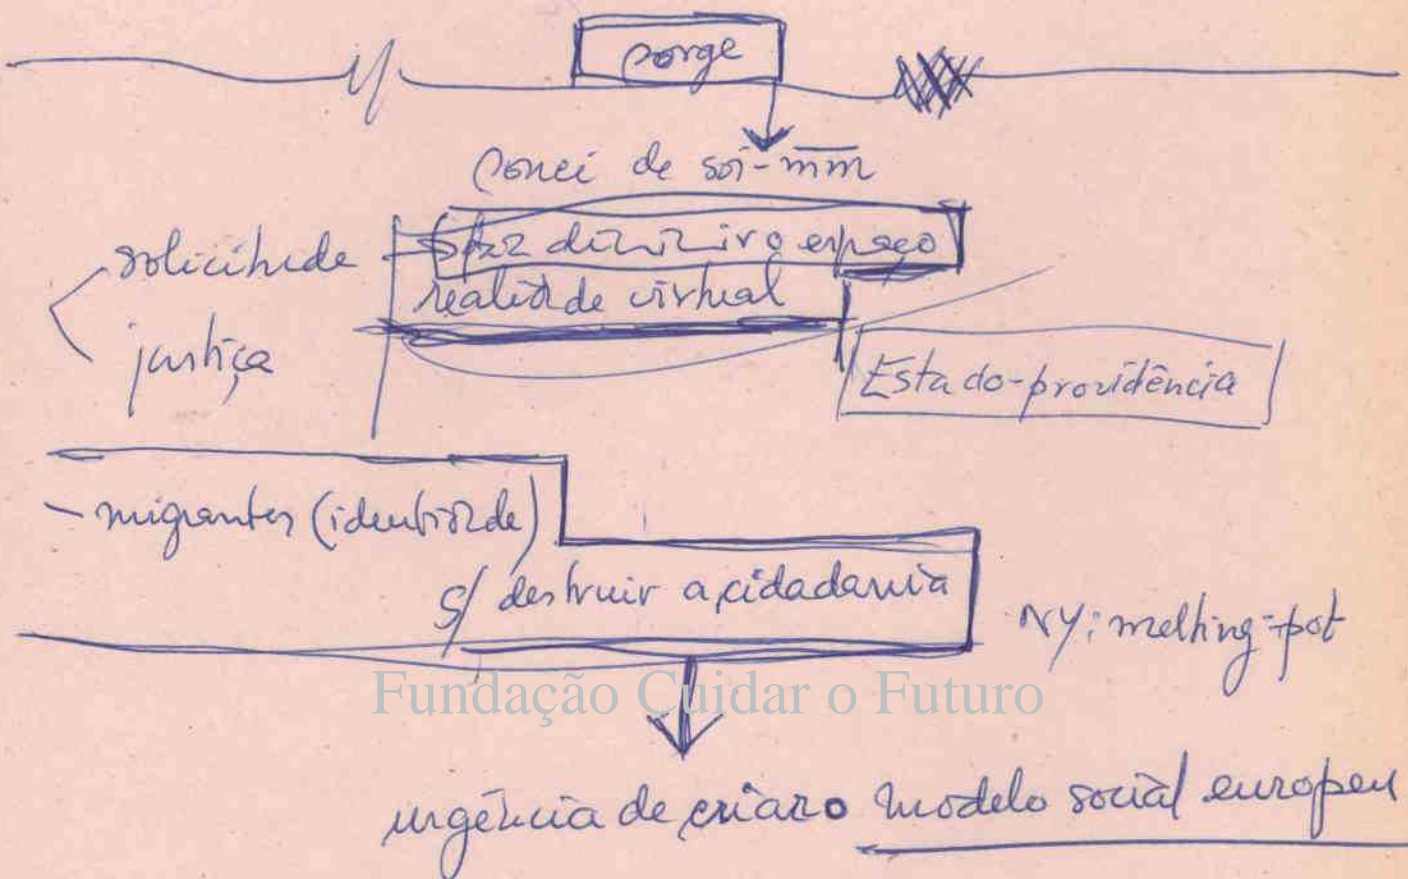 sorge
souci de soi-mm
solicitude
faz diminuir o espaço
realidade virtual
justiça
Estado-providência
- migrantes (identidade)
s/ destruir a cidadania
NY: melting-pot
Fundação Cuidar o Futuro
urgência de criar o modelo social europeu